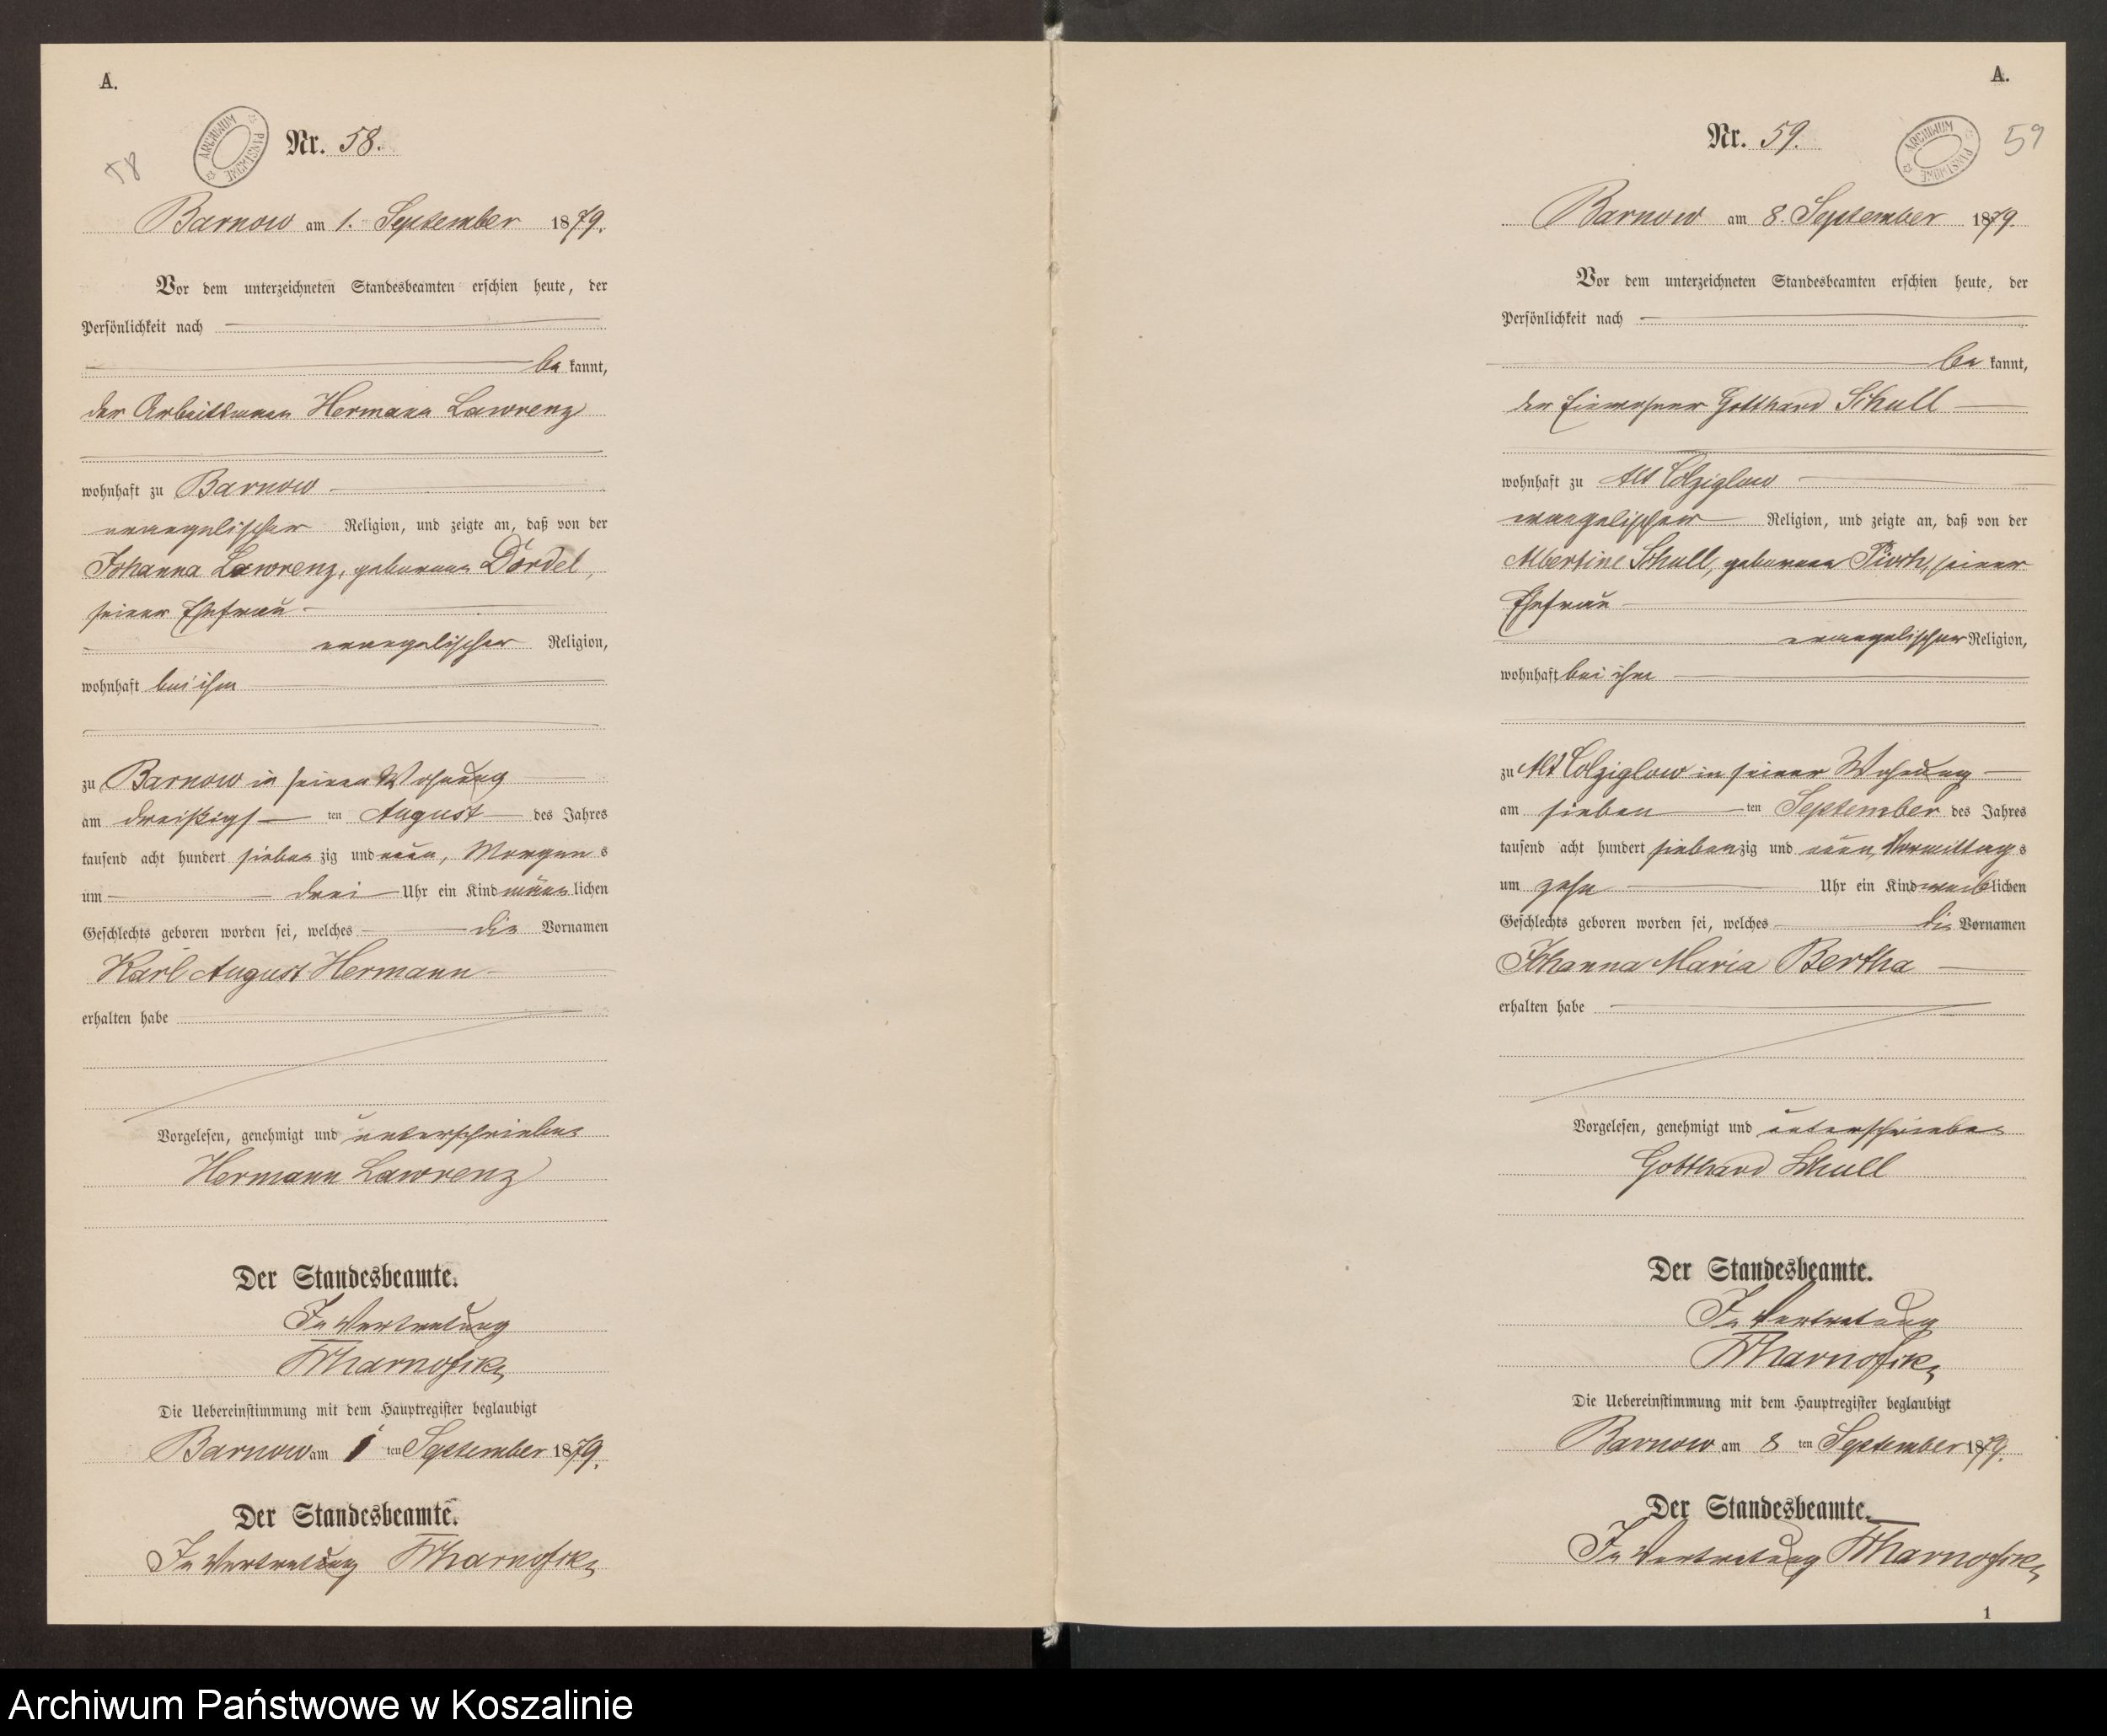 A.
58
ARCHIWUM PAŃSTWOWE
Nr. 58.
Barnow am 1. September 1879.
Vor dem unterzeichneten Standesbeamten erschien heute, der
Persönlichkeit nach
bekannt,
der Arbeitsmann Hermann Lawrenz
wohnhaft zu Barnow
evangelischer Religion, und zeigte an, daß von der
Johanna Lawrenz, geborene Dördel,
seiner Ehefrau
evangelischer Religion,
wohnhaft bei ihm
zu Barnow in seiner Wohnung
am dreißigsten August des Jahres
tausend acht hundert siebenzig und neun, Morgens
um drei Uhr ein Kind männlichen
Geschlechts geboren worden sei, welches die Vornamen
Karl August Hermann
erhalten habe
Vorgelesen, genehmigt und unterschrieben
Hermann Lawrenz
Der Standesbeamte.
In Vertretung
Die Uebereinstimmung mit dem Hauptregister beglaubigt
Barnow am 1ten September 1879.
Der Standesbeamte.
In Vertretung
A.
59
ARCHIWUM PAŃSTWOWE
Nr. 59.
Barnow am 8. September 1879.
Vor dem unterzeichneten Standesbeamten erschien heute, der
Persönlichkeit nach
bekannt,
der Einwohner Gotthard Schull
wohnhaft zu Alt Colziglow
evangelischer Religion, und zeigte an, daß von der
Albertine Schull, geborenen seiner
Ehefrau
evangelischer Religion,
wohnhaft bei ihm
zu Alt Colziglow in seiner Wohnung
am siebenten September des Jahres
tausend acht hundert siebenzig und neun, Vormittags
um zehn Uhr ein Kind weiblichen
Geschlechts geboren worden sei, welches die Vornamen
Johanna Maria Bertha
erhalten habe
Vorgelesen, genehmigt und unterschrieben
Gotthard Schull
Der Standesbeamte.
In Vertretung
Die Uebereinstimmung mit dem Hauptregister beglaubigt
Barnow am 8ten September 1879.
Der Standesbeamte.
In Vertretung
1
Archiwum Państwowe w Koszalinie